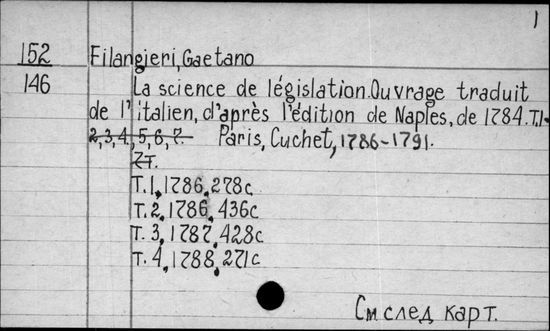 1
152 Filangieri, Gaetano
146 La science de législation. Ouvrage traduit
de l'italien, d'après l'édition de Naples, de 1784. T.1-
2,3,4,5,6,7. Paris, Cuchet, 1786-1791.
7т.
Т. 1, 1786, 278с
Т. 2, 1786, 436с
Т. 3, 1787, 428с
Т. 4, 1788, 271с
См след карт.